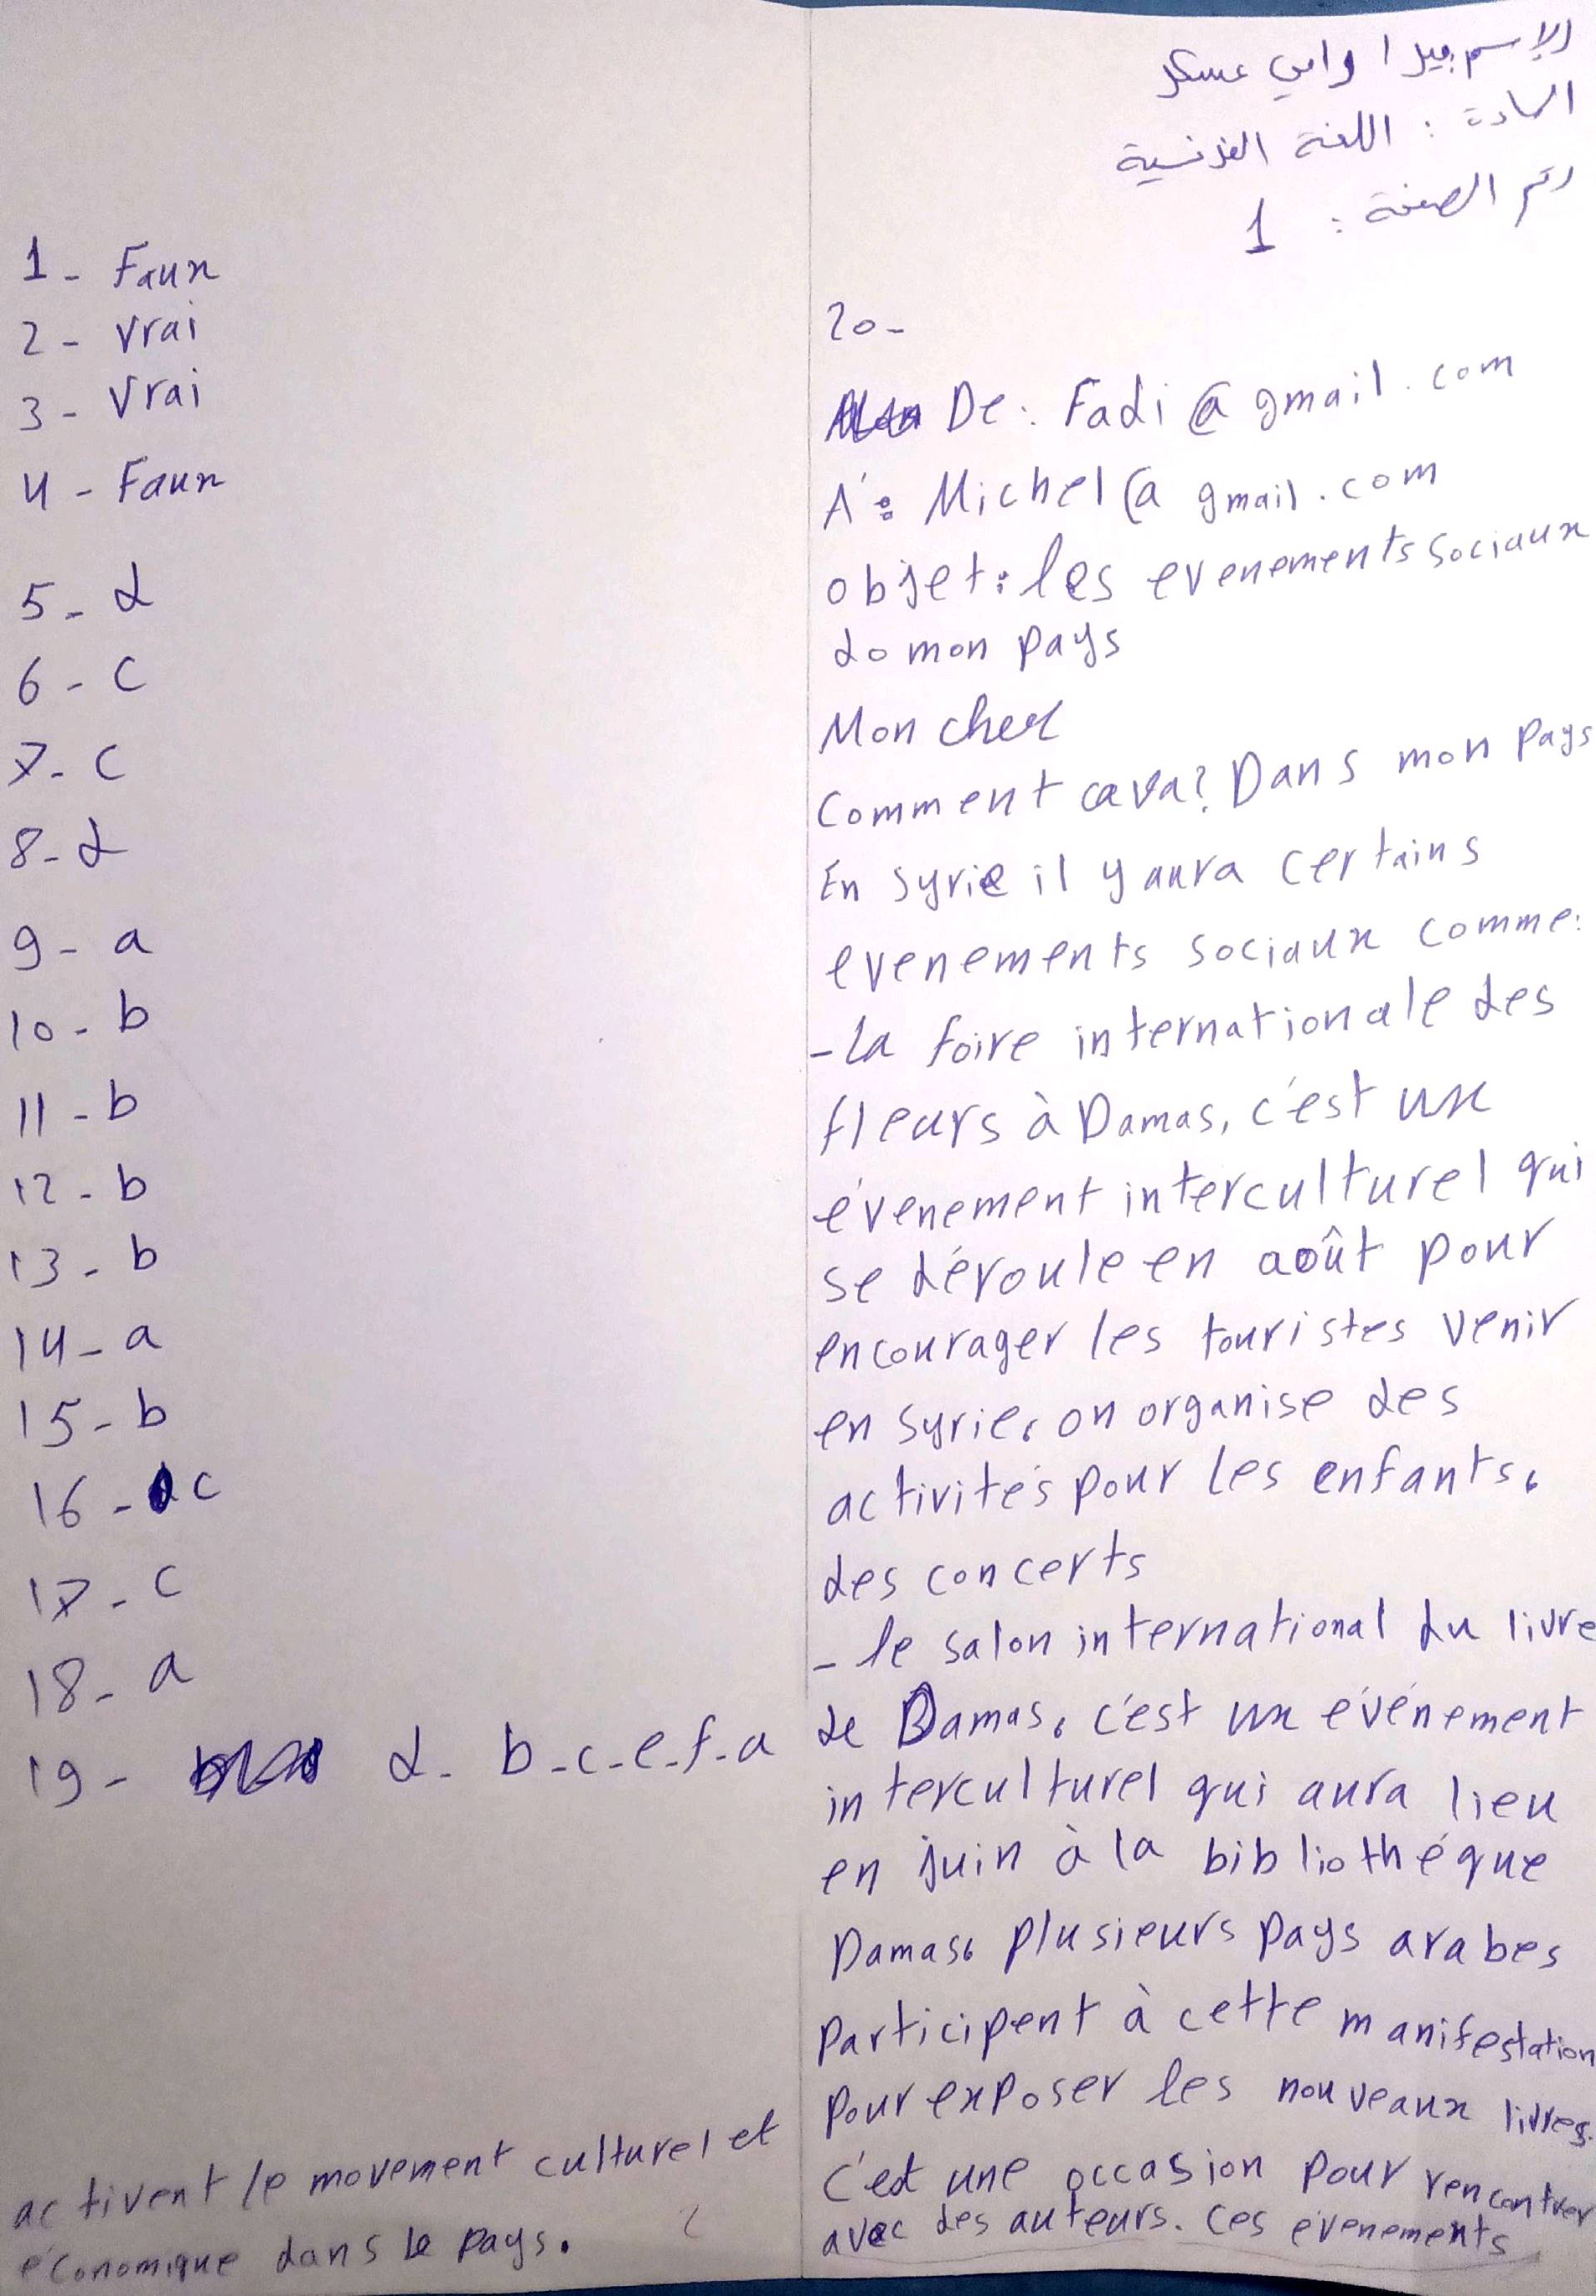 الإسم: ميرا رامي عسكر
المادة : اللغة الفرنسية
رقم الصفحة : 1
1 - Faux
2 - vrai
3 - Vrai
4 - Faux
5 - d
6 - c
7 - c
8 - d
9 - a
10 - b
11 - b
12 - b
13 - b
14 - a
15 - b
16 - c
17 - c
18 - a
19 - d - b - c - e - f - a
20 -
De : Fadi @ gmail . com
A : Michel @ gmail . com
objet : les evenements sociaux
do mon pays
Mon cher
Comment cava? Dans mon pays
En Syrie il y aura certains
evenements sociaux comme :
- la foire internationale des
fleurs à Damas, c'est un
évenement interculturel qui
se déroule en août pour
encourager les touristes venir
en Syrie, on organise des
activités pour les enfants,
des concerts
- le salon international du livre
de Damas, c'est un événement
interculturel qui aura lieu
en juin à la bibliothéque
Damas, plusieurs pays arabes
participent à cette manifestation
pour exposer les nouveaux livres.
C'est une occasion pour rencontrer
avec des auteurs. Ces évenements
activent le movement culturel et
économique dans le pays.
2